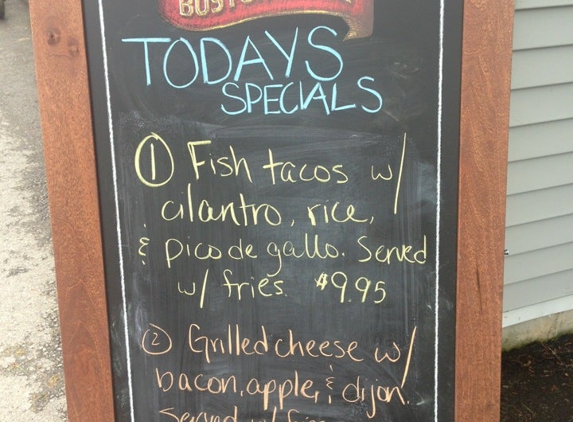 TODAYS
SPECIALS
① Fish tacos w/
cilantro, rice,
& pico de gallo. Served
w/ fries. $9.95
② Grilled cheese w/
bacon, apple, & dijon.
Served w/